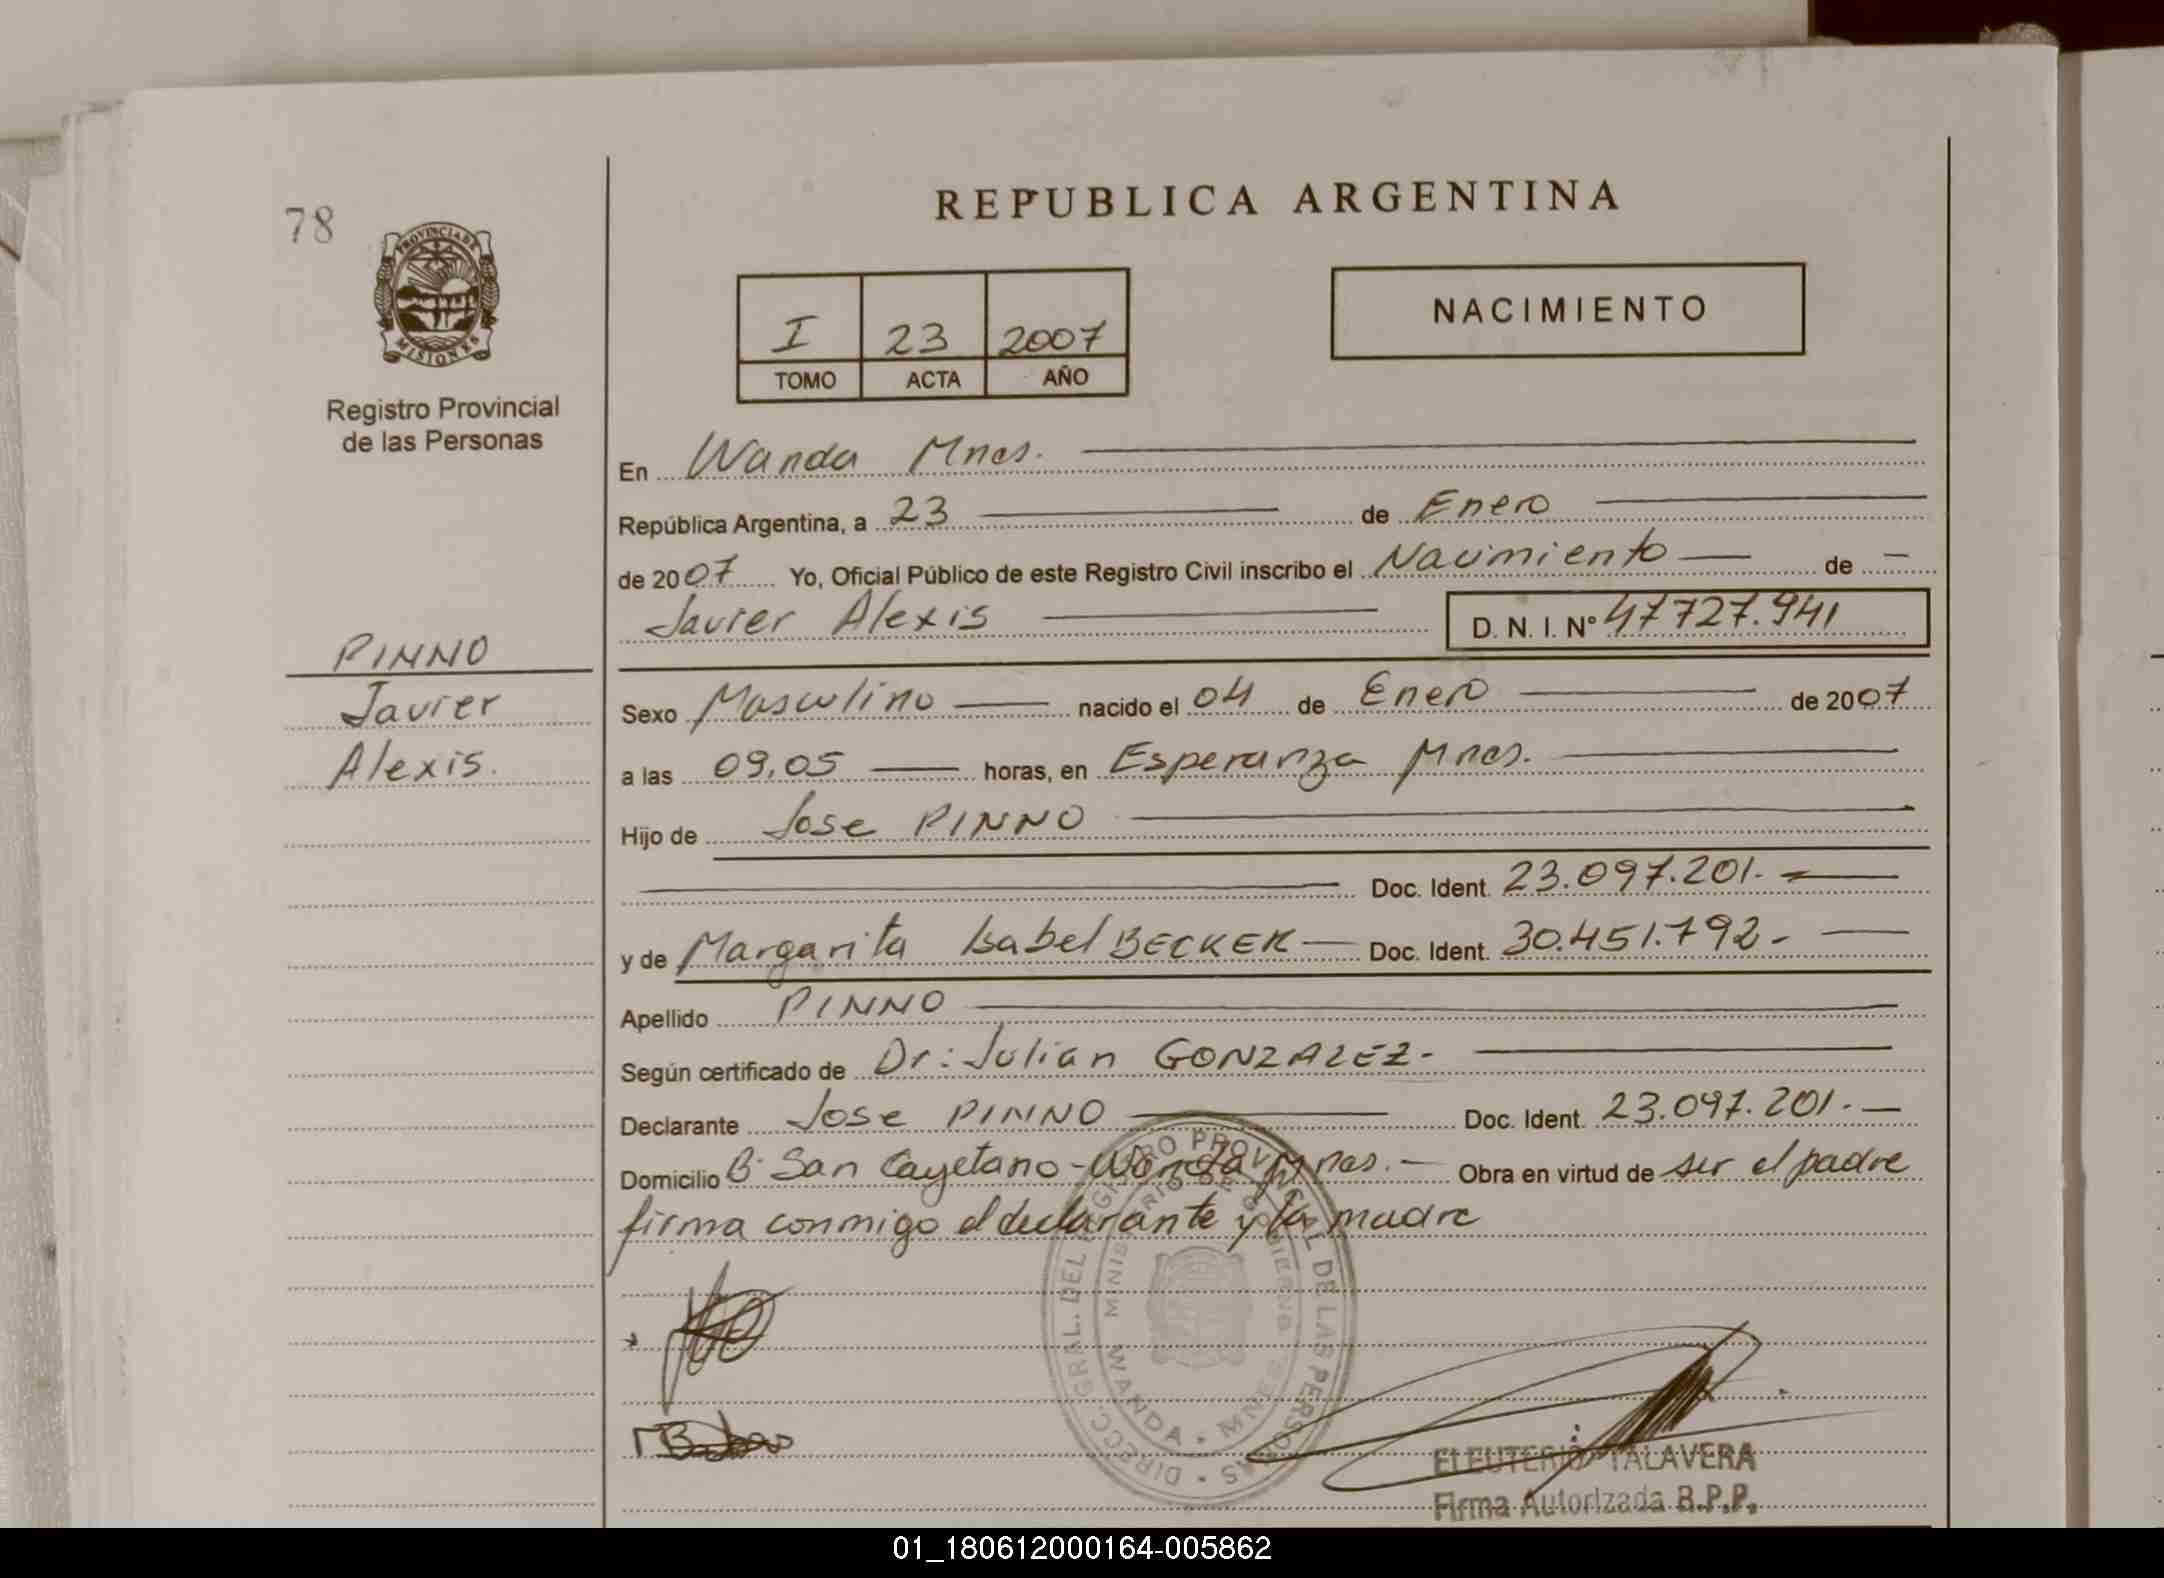 78
REPUBLICA ARGENTINA
PROVINCIA DE
MISIONES
NACIMIENTO
I 23 2007
TOMO ACTA AÑO
Registro Provincial
de las Personas
En Wanda Mnes.
República Argentina, a 23 de Enero
de 2007 Yo, Oficial Público de este Registro Civil inscribo el Nacimiento de
Javier Alexis D. N. I. Nº 47727.941
PINNO
Javier
Alexis.
Sexo Masculino nacido el 04 de Enero de 2007
a las 09,05 horas, en Esperanza Mnes.
Hijo de Jose PINNO
Doc. Ident. 23.097.201.
y de Margarita Isabel BECKER Doc. Ident. 30.451.792-
Apellido PINNO
Según certificado de Dr: Julian GONZALEZ-
Declarante Jose PINNO Doc. Ident. 23.097.201.
Domicilio B· San Cayetano-Wanda Mnes. Obra en virtud de ser el padre
firma conmigo el declarante y la madre
DIRECC. GRAL. DEL REGISTRO PROVINCIAL DE LAS PERSONAS
MINISTERIO DE GOBIERNO
WANDA · MNES
ELEUTERIO TALAVERA
Firma Autorizada B.P.P.
01_180612000164-005862